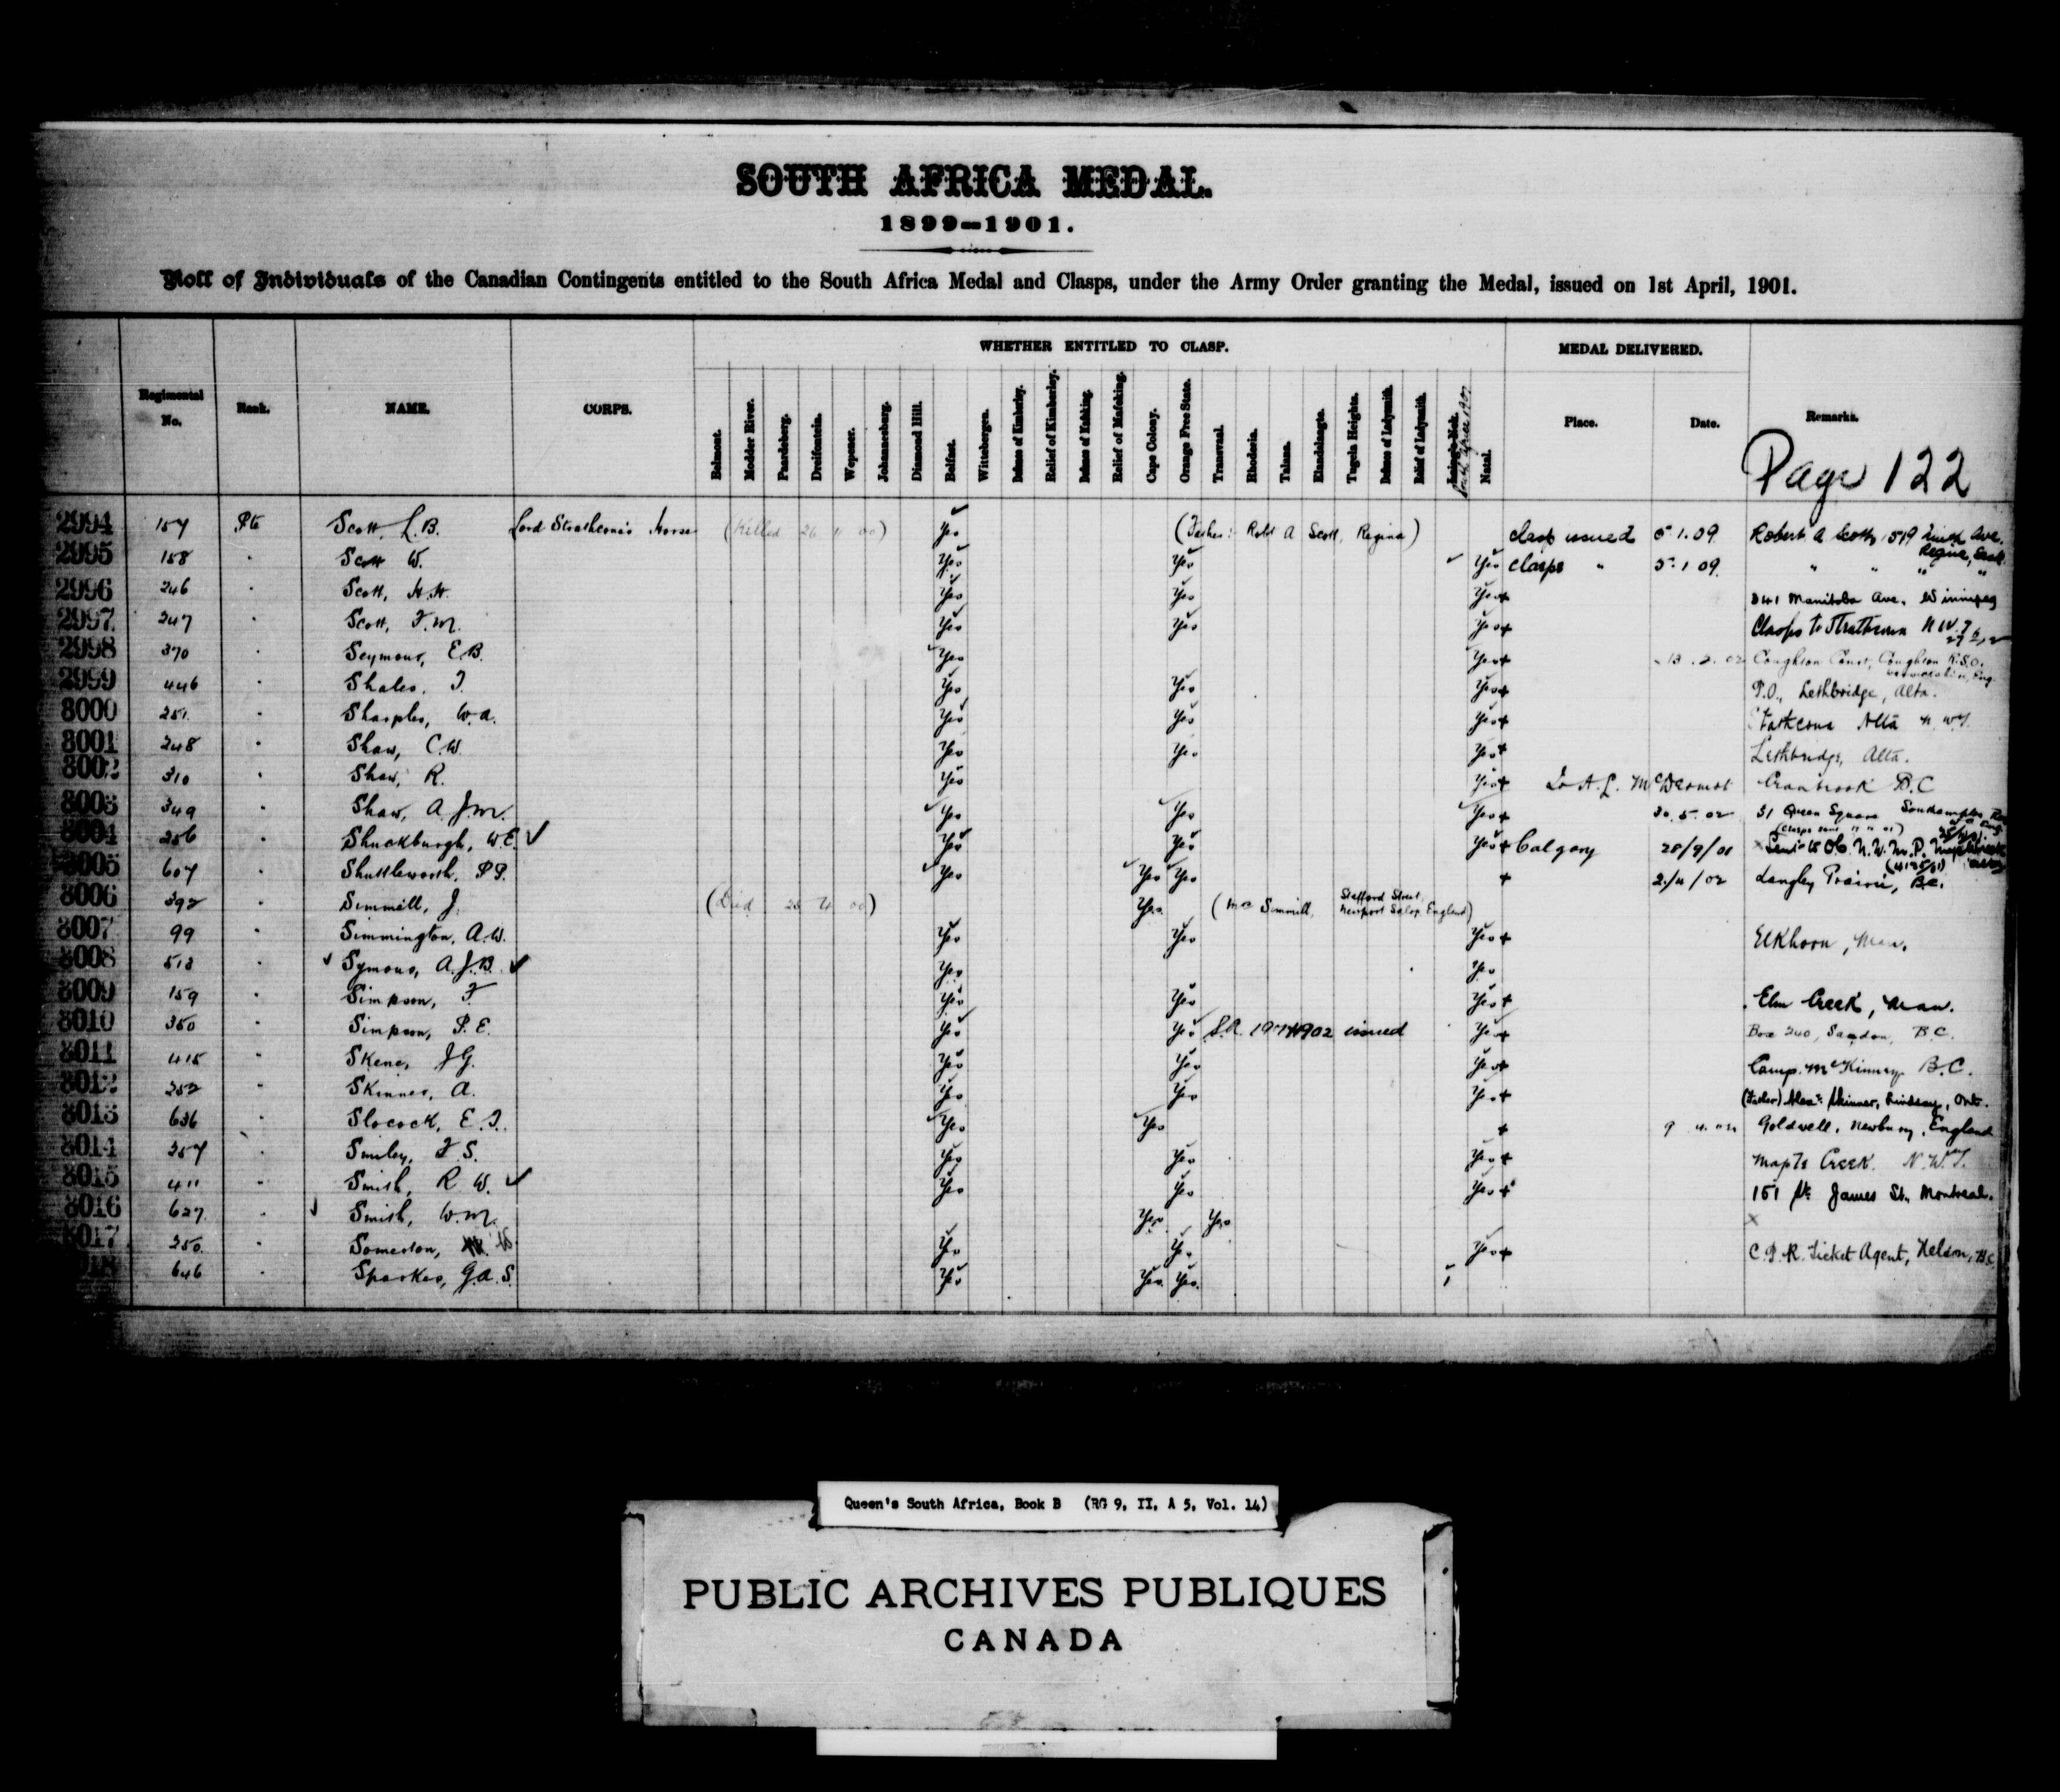 SOUTH AFRICA MEDAL.
1899-1901.
Roll of Individuals of the Canadian Contingents entitled to the South Africa Medal and Clasps, under the Army Order granting the Medal, issued on 1st April, 1901.
WHETHER ENTITLED TO CLASP. MEDAL DELIVERED.
Regimental No. Rank. NAME. CORPS. Belmont. Modder River. Paardeberg. Dreifontein. Wepener. Johannesburg. Diamond Hill. Belfast. Wittebergen. Defense of Kimberley. Relief of Kimberley. Defense of Mafeking. Relief of Mafeking. Cape Colony. Orange Free State. Transvaal. Rhodesia. Talana. Elandslaagte. Tugela Heights. Defense of Ladysmith. Relief of Ladysmith. Laing's Nek. South Africa 1901 Natal. Place. Date. Remarks.
Page 122
2994 157 Pte Scott, L.B. Lord Strathcona's Horse (Killed 26 11 00) Yes (Father:- Robt A Scott, Regina) clasp issued 5.1.09. Robert A Scott, 1519 Ave. Regina, Sask.
2995 158 " Scott W. Yes Yes Yes clasps " 5.1.09. " " " "
2996 246 " Scott, H.H. Yes Yes Yes + 341 Manitoba Ave. Winnipeg
2997 247 " Scott, F.M. Yes Yes Yes + Clasps to Strathcona N.W.T.
2998 370 " Seymour, E.B. Yes Yes + 13.2.02 Coughton Court, Coughton R.S.O. Eng.
2999 446 " Shales, T. Yes Yes Yes + P.O., Lethbridge, Alta.
3000 251 " Sharples, W.A. Yes Yes Yes + Strathcona Alta N.W.T.
3001 248 " Shaw, C.W. Yes Yes Yes + Lethbridge, Alta.
3002 310 " Shaw, R. Yes Yes + To A.L. McDermot Cranbrook B.C
3003 349 " Shaw, A.J.M. Yes Yes Yes + 30.5.02 51 Queen Square Southampton
3004 256 " Shuckburgh, W.E. Yes Yes Yes + Calgary 28/9/01 Sent to OC. N.W.M.P.
3005 607 " Shuttleworth, P.P. Yes Yes Yes + 2/4/02 Langley Prairie, B.C.
3006 392 " Simmill, J. (Died 23 4 00) Yes (Mrs Simmill, Stafford Street, Newport Salop, England)
3007 99 " Simmington, A.W. Yes Yes Yes + Elkhorn, Man.
3008 513 " Symons, A.J.B. Yes Yes
3009 159 " Simpson, F. Yes Yes Yes + Elm Creek, Man.
3010 350 " Simpson, P.E. Yes Yes S.A. 1901+1902 issued Yes + Box 240, Sandon, B.C.
3011 415 " Skene, J.G. Yes Yes Yes + Camp McKinney B.C.
3012 252 " Skinner, A. Yes Yes Yes + (Father) Alexr. Skinner, Lindsay, Ont.
3013 636 " Slocock, E.T. Yes Yes + 9.4.02 Goldwell, Newbury, England
3014 257 " Smiley, F.S. Yes Yes Yes + Maple Creek. N.W.T.
3015 411 " Smith, R.W. Yes Yes Yes + 151 St. James St., Montreal.
3016 627 " Smith, W.M. Yes Yes x
3017 250 " Somerton, Yes Yes Yes + C.P.R. Ticket Agent, Nelson, B.C.
646 " Sparkes, G.A.S. Yes Yes Yes
Queen's South Africa, Book B (RG 9, II, A 5, Vol. 14)
PUBLIC ARCHIVES PUBLIQUES
CANADA